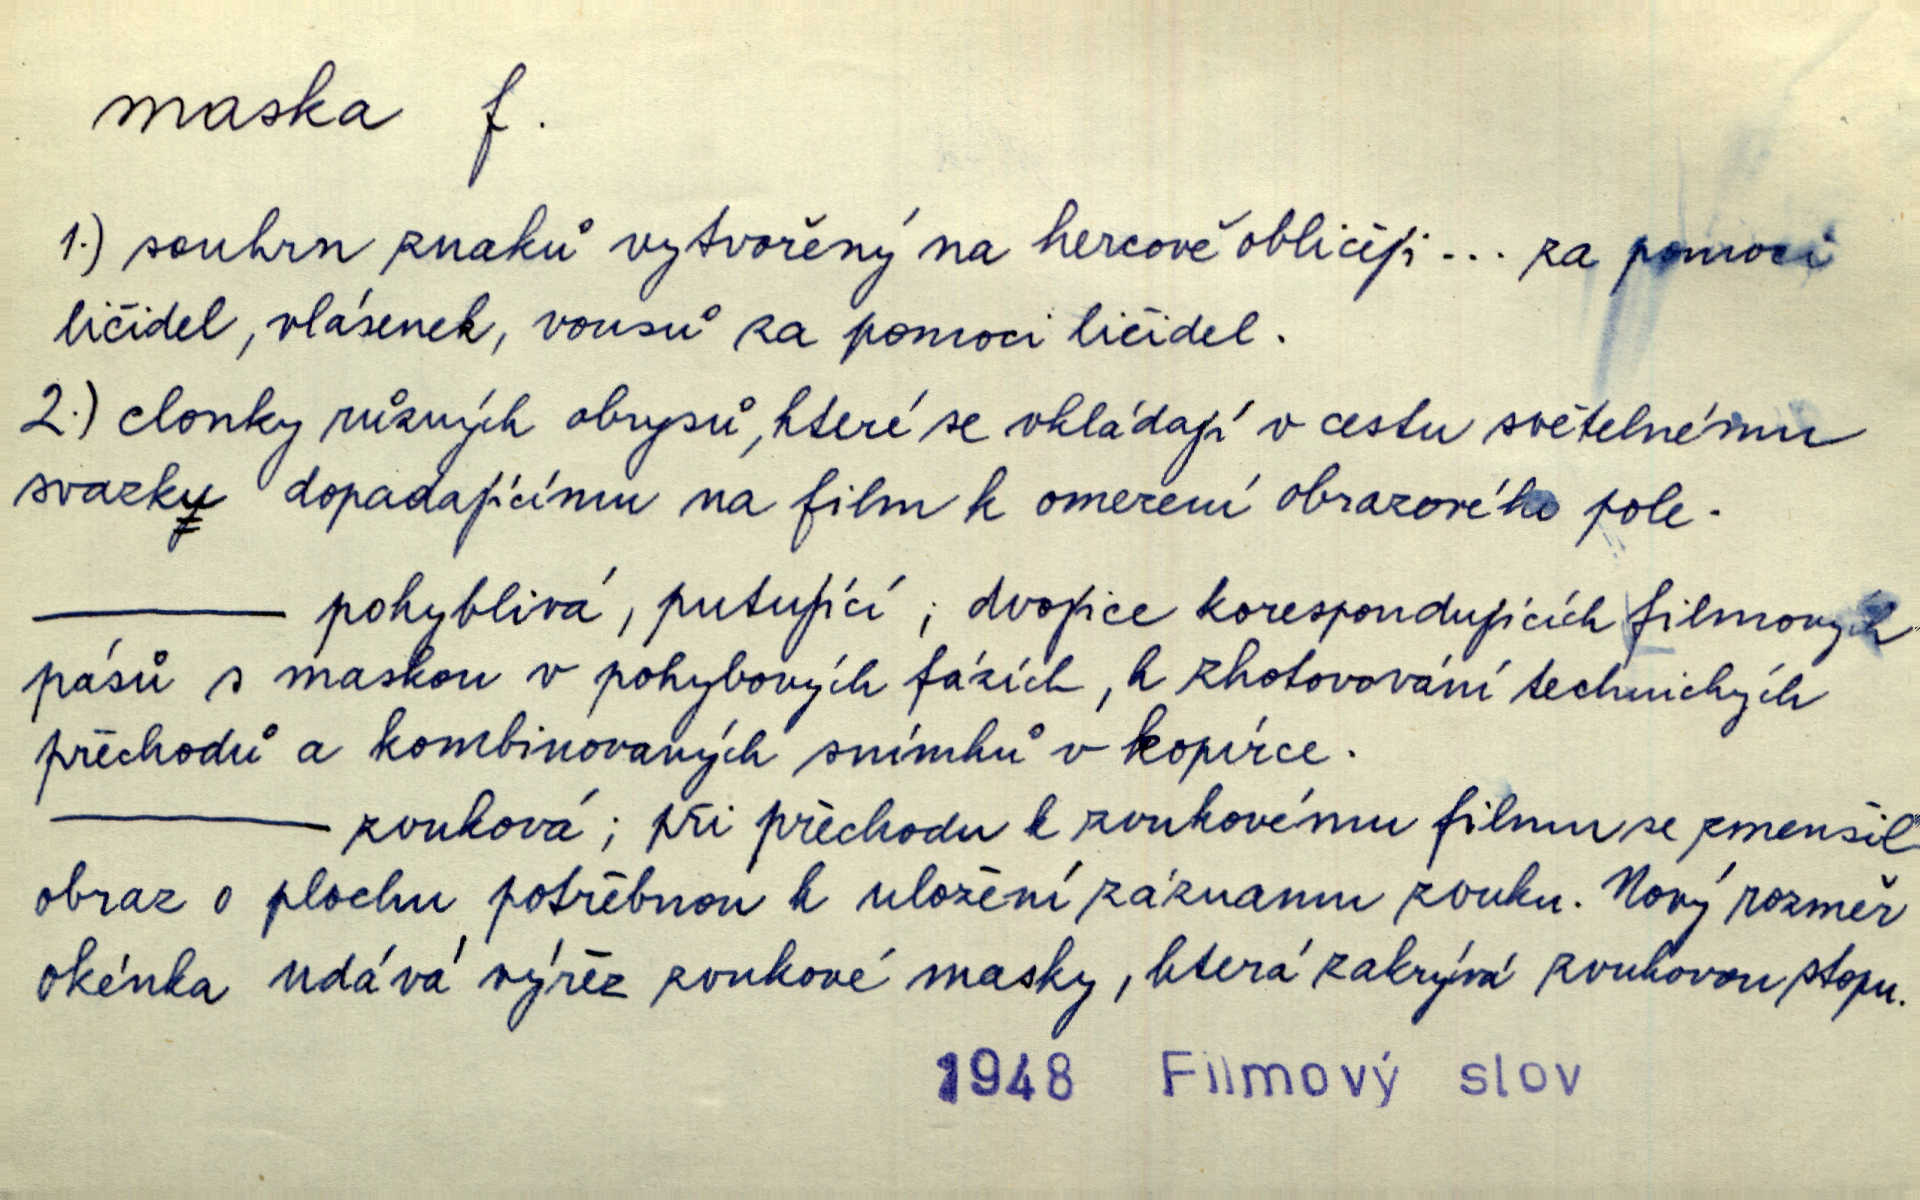 maska f.
1.) souhrn znaků vytvořený na hercově obličeji ... za pomoci
ličidel, vlásenek, vousů za pomoci ličidel.
2.) clonky různých obrysů, které se vkládají v cestu světelnému
svazku dopadajícímu na film k omezení obrazového pole.
——— pohyblivá, putující; dvojice korespondujících filmových
pásů s maskou v pohybových fázích, k zhotovování technických
přechodů a kombinovaných snímků v kopírce.
——— zvuková; při přechodu k zvukovému filmu se zmenšil
obraz o plochu potřebnou k uložení záznamu zvuku. Nový rozměr
okénka udává výřez zvukové masky, která zakrývá zvukovou stopu.
1948 Filmový slov